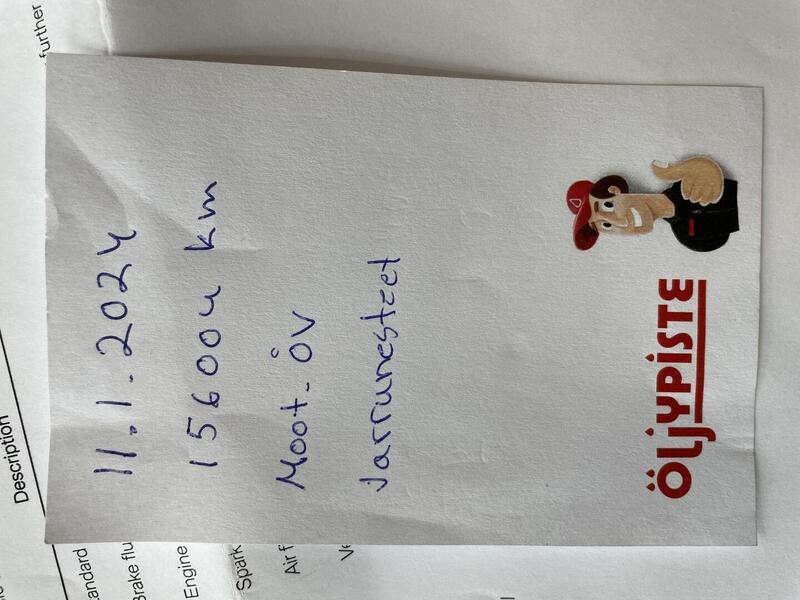 11.1.2024
156004 km
Moot-öv
Jarrunesteet
ÖLJYPISTE
Description
Standard
Brake flu
Engine
Spark
Air f
Ve
further